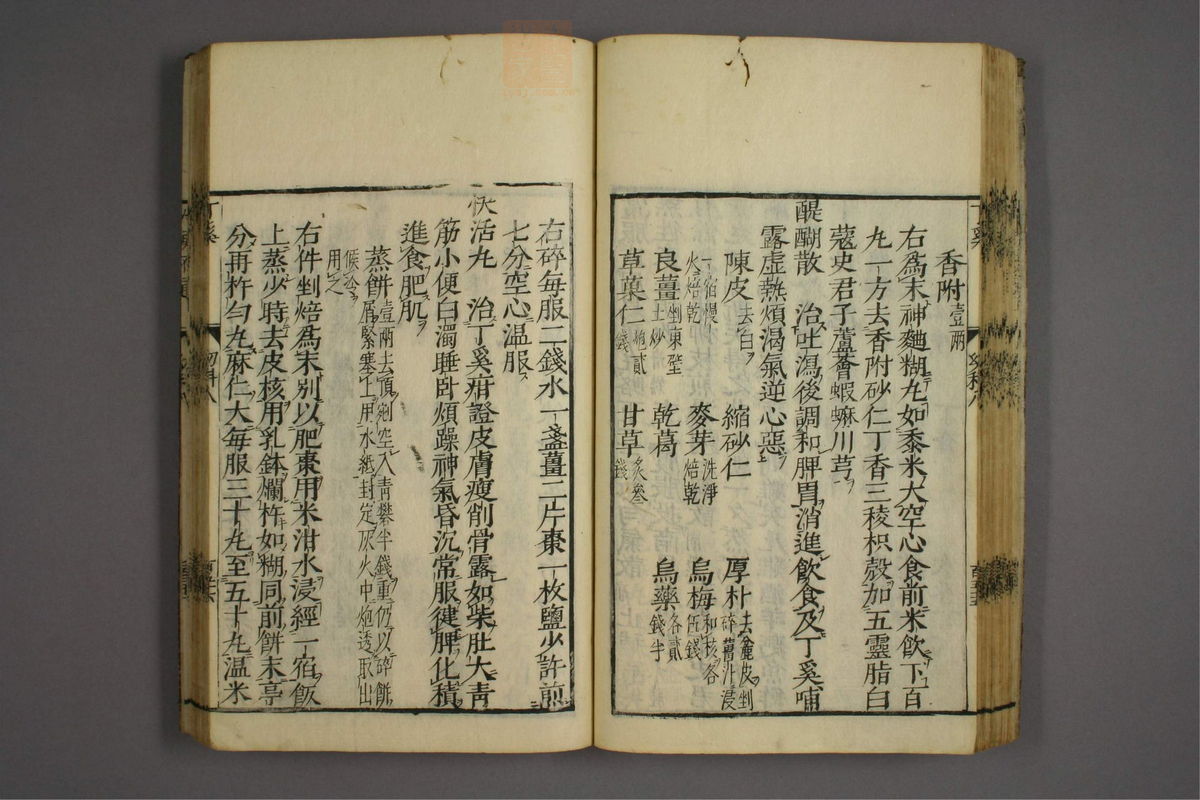 香附壹兩
右為末神麯糊丸如黍米大空心食前米飲下百
丸一方去香附砂仁丁香三稜枳殼加五靈脂白
蔻史君子蘆薈蝦蟆川芎
醍醐散 治吐瀉後調和脾胃消進飲食及丁奚哺
露虛熱煩渴氣逆心惡
陳皮去白 縮砂仁 厚朴去麄皮剉碎薑汁浸
一宿慢火焙乾 麥芽洗淨焙乾 烏梅和核各伍錢
良薑剉東壁土炒 乾葛 烏藥各貳錢半
草菓仁炮貳錢 甘草炙叄錢
右碎每服二錢水一盞薑二片棗一枚鹽少許煎
七分空心溫服
快活丸 治丁奚疳證皮膚瘦削骨露如柴肚大青
筋小便白濁睡臥煩躁神氣昏沉常服健脾化積
進食肥肌
蒸餅壹兩去頂剜空入青礬半錢重仍以碎餅屑緊塞上用水紙封定灰火中炮透取出候冷用之
右件剉焙為末別以肥棗用米泔水浸經一宿飯
上蒸少時去皮核用乳鉢爛杵如糊同前餅末亭
分再杵勻丸麻仁大每服三十丸至五十丸溫米